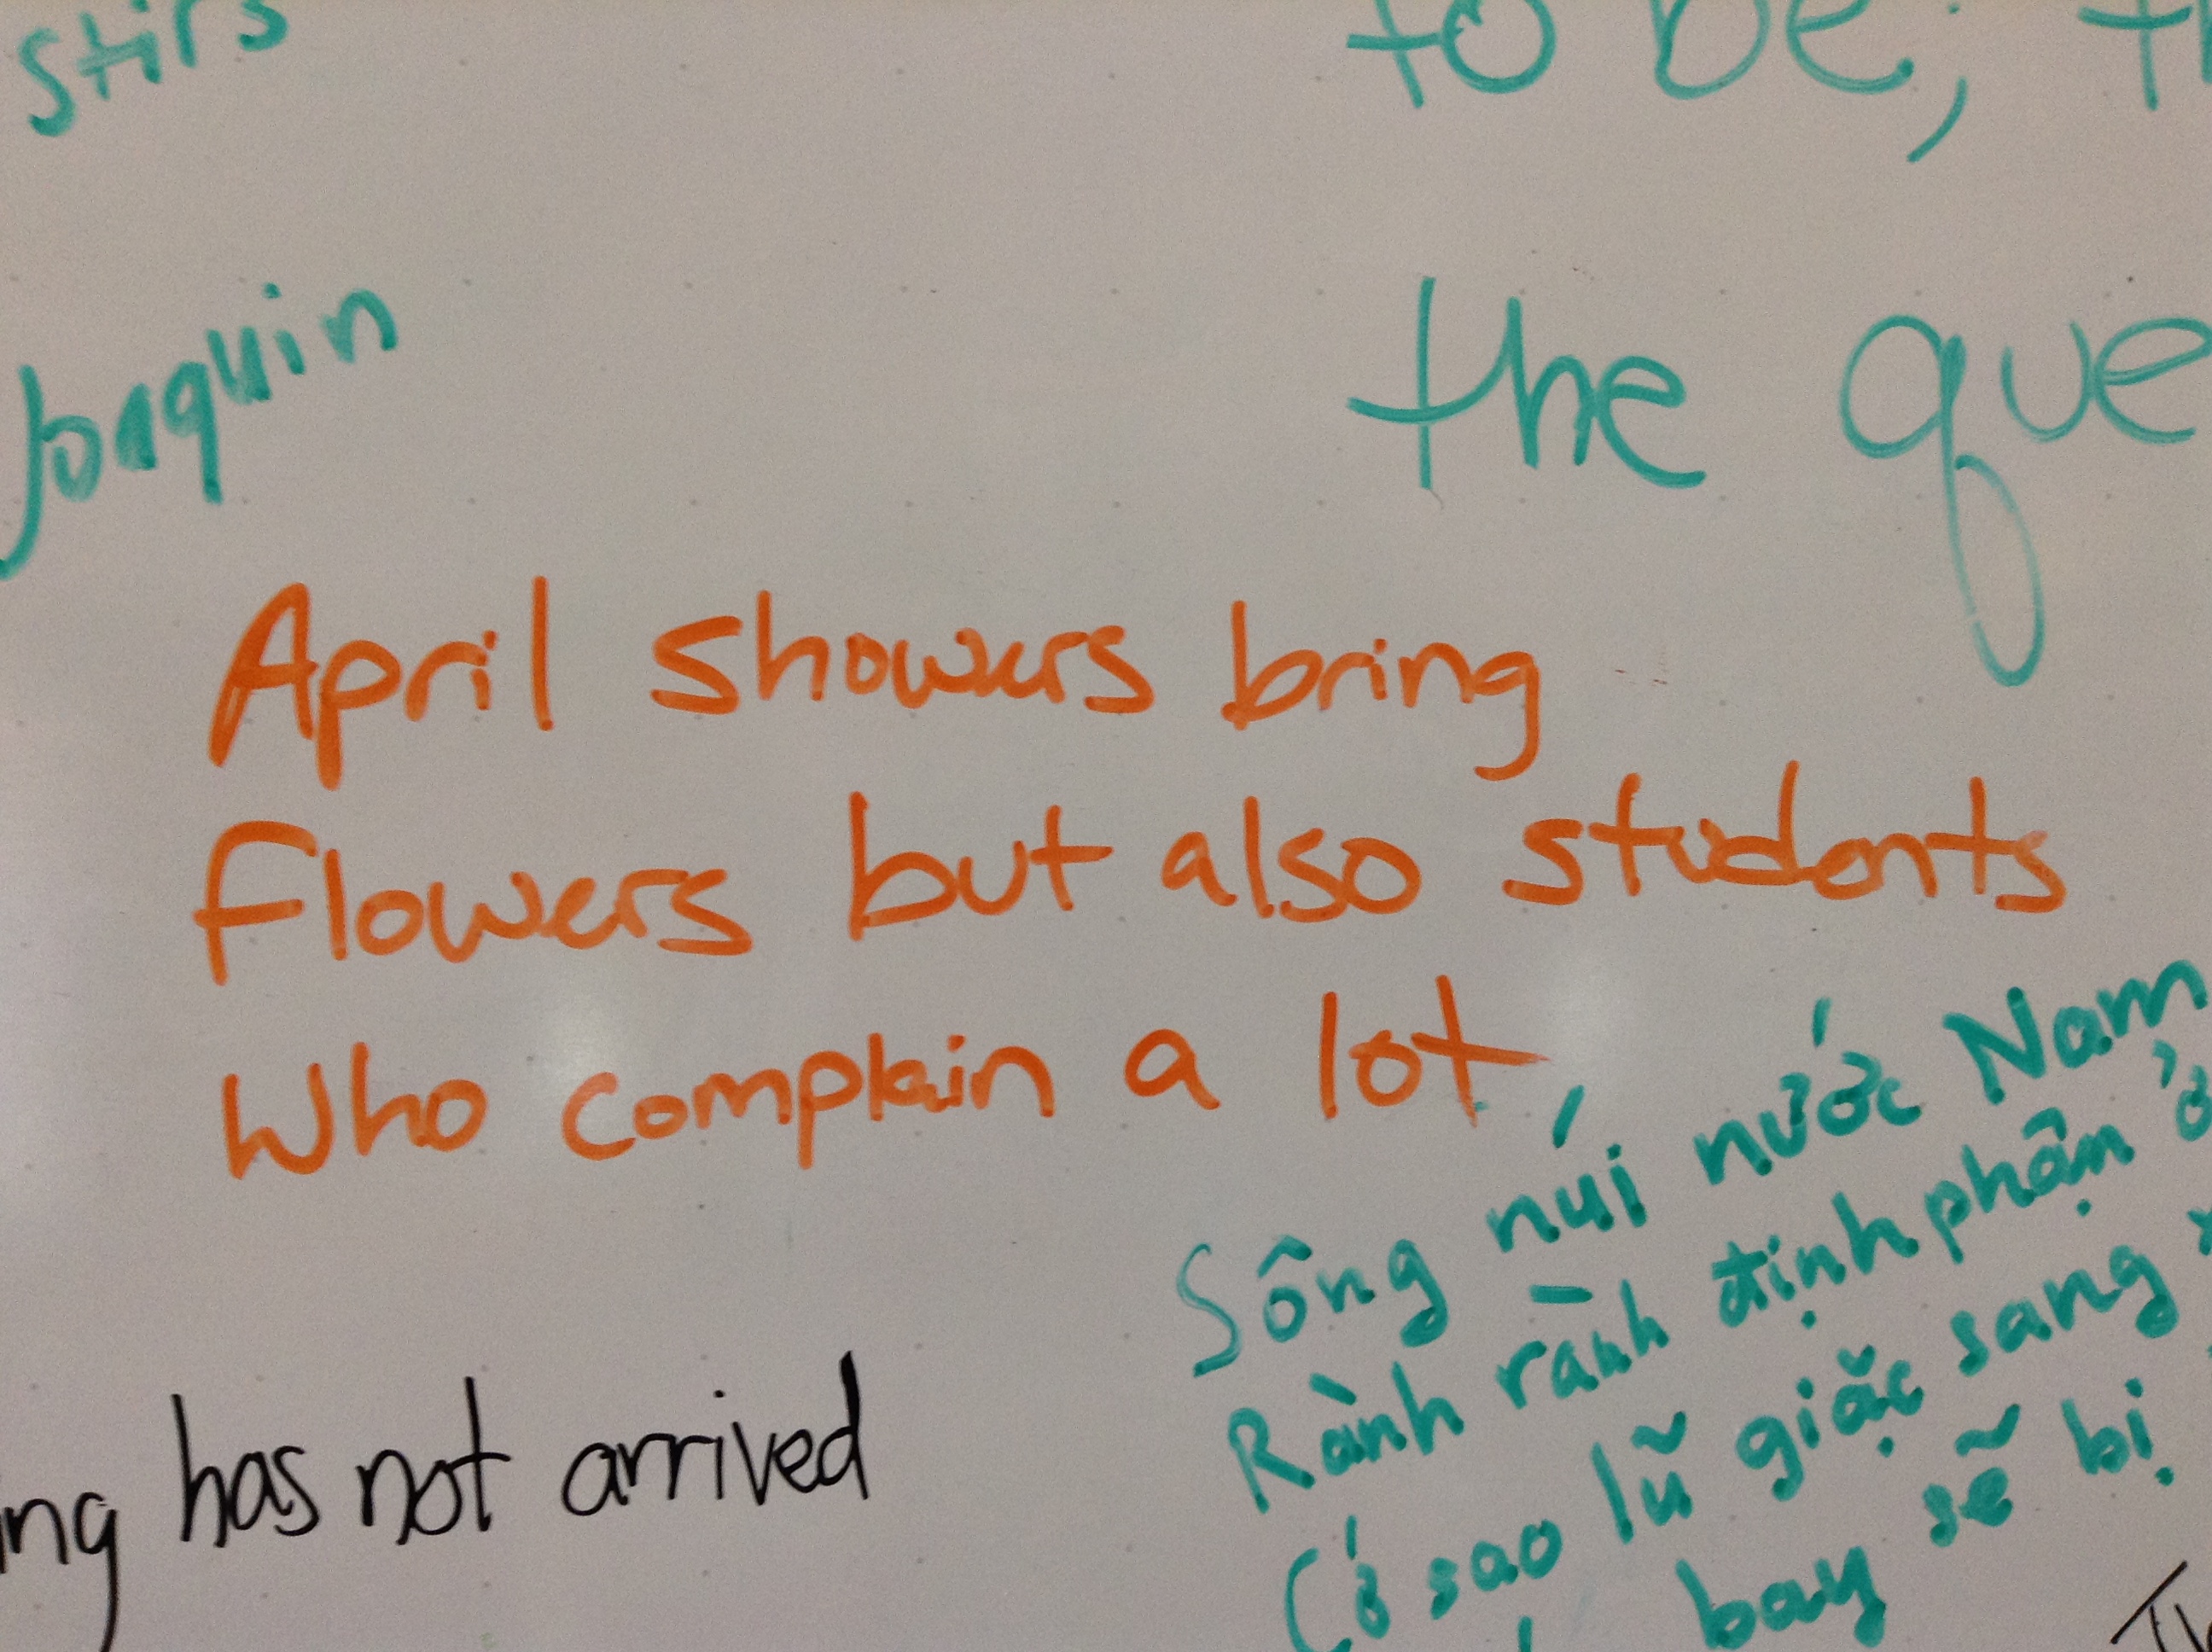 stirs
to be, th
Joaquin
the que
April showers bring
flowers but also students
who complain a lot
Sông núi nước Nam
Rành rành định phận ở
Cớ sao lũ giặc sang
bay sẽ bị
ng has not arrived